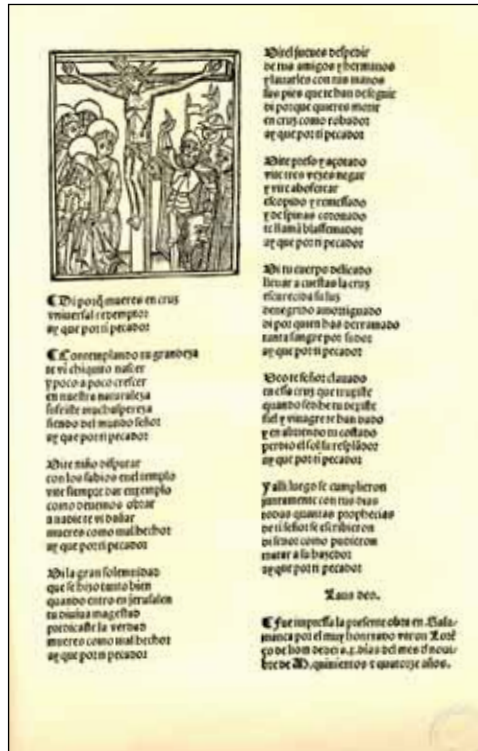 ¶ Di porq̄ mueres en cruz
vniuersal redemptor
ay que por ti pecador
¶ Contemplando tu grandeza
te vi chiquito nascer
y poco a poco crescer
en nuestra naturaleza
sufriste mucha spereza
siendo del mundo señor
ay que por ti pecador
Vite niño disputar
con los sabios en el templo
vite siempre dar enxemplo
como deuemos obrar
a nadie te vi dañar
mueres como mal hechor
ay que por ti pecador
Vi la gran solemnidad
que se hizo tanto bien
quando entro en jerusalen
tu diuina magestad
predicaste la verdad
mueres como mal hechor
ay que por ti pecador
Vi el jueues despedir
de tus amigos y hermanos
y lauarles con tus manos
sus pies que te han de seguir
di porque quieres morir
en cruz como robador
ay que por ti pecador
Vite preso y açotado
vite tres vezes negar
y vite abofetear
escopido y remessado
y de spinas coronado
te llamā blasfemador
ay que por ti pecador
Vi tu cuerpo delicado
lleuar a cuestas la cruz
escurecida su luz
denegrido amortiguado
di por quien has derramado
tanta sangre por sudor
ay que por ti pecador
Veo te señor clauado
en essa cruz que truxiste
quando sed be tu dexiste
fiel y vinagre te han dado
y en abriendo tu costado
perdio el sol su resplādor
ay que por ti pecador
Y alli luego se cumplieron
juntamente con tus dias
todas quantas prophecias
de ti señor se escribieron
di señor como pudieron
matar a su hazedor
ay que por ti pecador
Laus deo.
¶ Fue impressa la presente obra en Sala-
manca por el muy honrrado varon Lorē
ço de hom dedei a . dias del mes d nouiē
bre de M. quinientos z quatorze años.